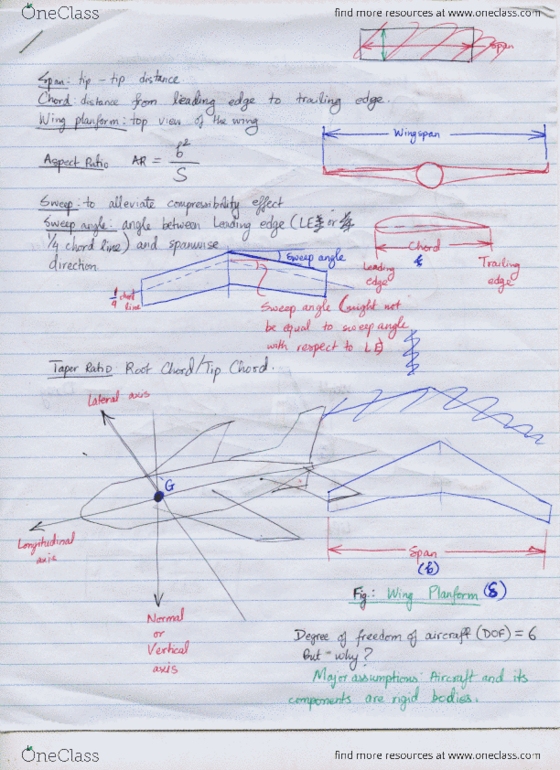 OneClass
find more resources at www.oneclass.com
Span
Span: tip - tip distance.
Chord: distance from leading edge to trailing edge.
Wing planform: top view of the wing
Wingspan
Aspect Ratio AR = b²/S
Sweep: to alleviate compressibility effect
Sweep angle: angle between Leading edge (LE or
1/4 chord line) and spanwise
direction
Sweep angle
Chord
Leading
edge
Trailing
edge
1/4 chord
line
Sweep angle (might not
be equal to sweep angle
with respect to LE)
Taper Ratio: Root Chord/Tip Chord.
Lateral axis
G
Longitudinal
axis
Span
(b)
Fig: Wing Planform (S)
Normal
or
Vertical
axis
Degree of freedom of aircraft (DOF) = 6
But - why?
Major assumptions: Aircraft and its
components are rigid bodies.
OneClass
find more resources at www.oneclass.com